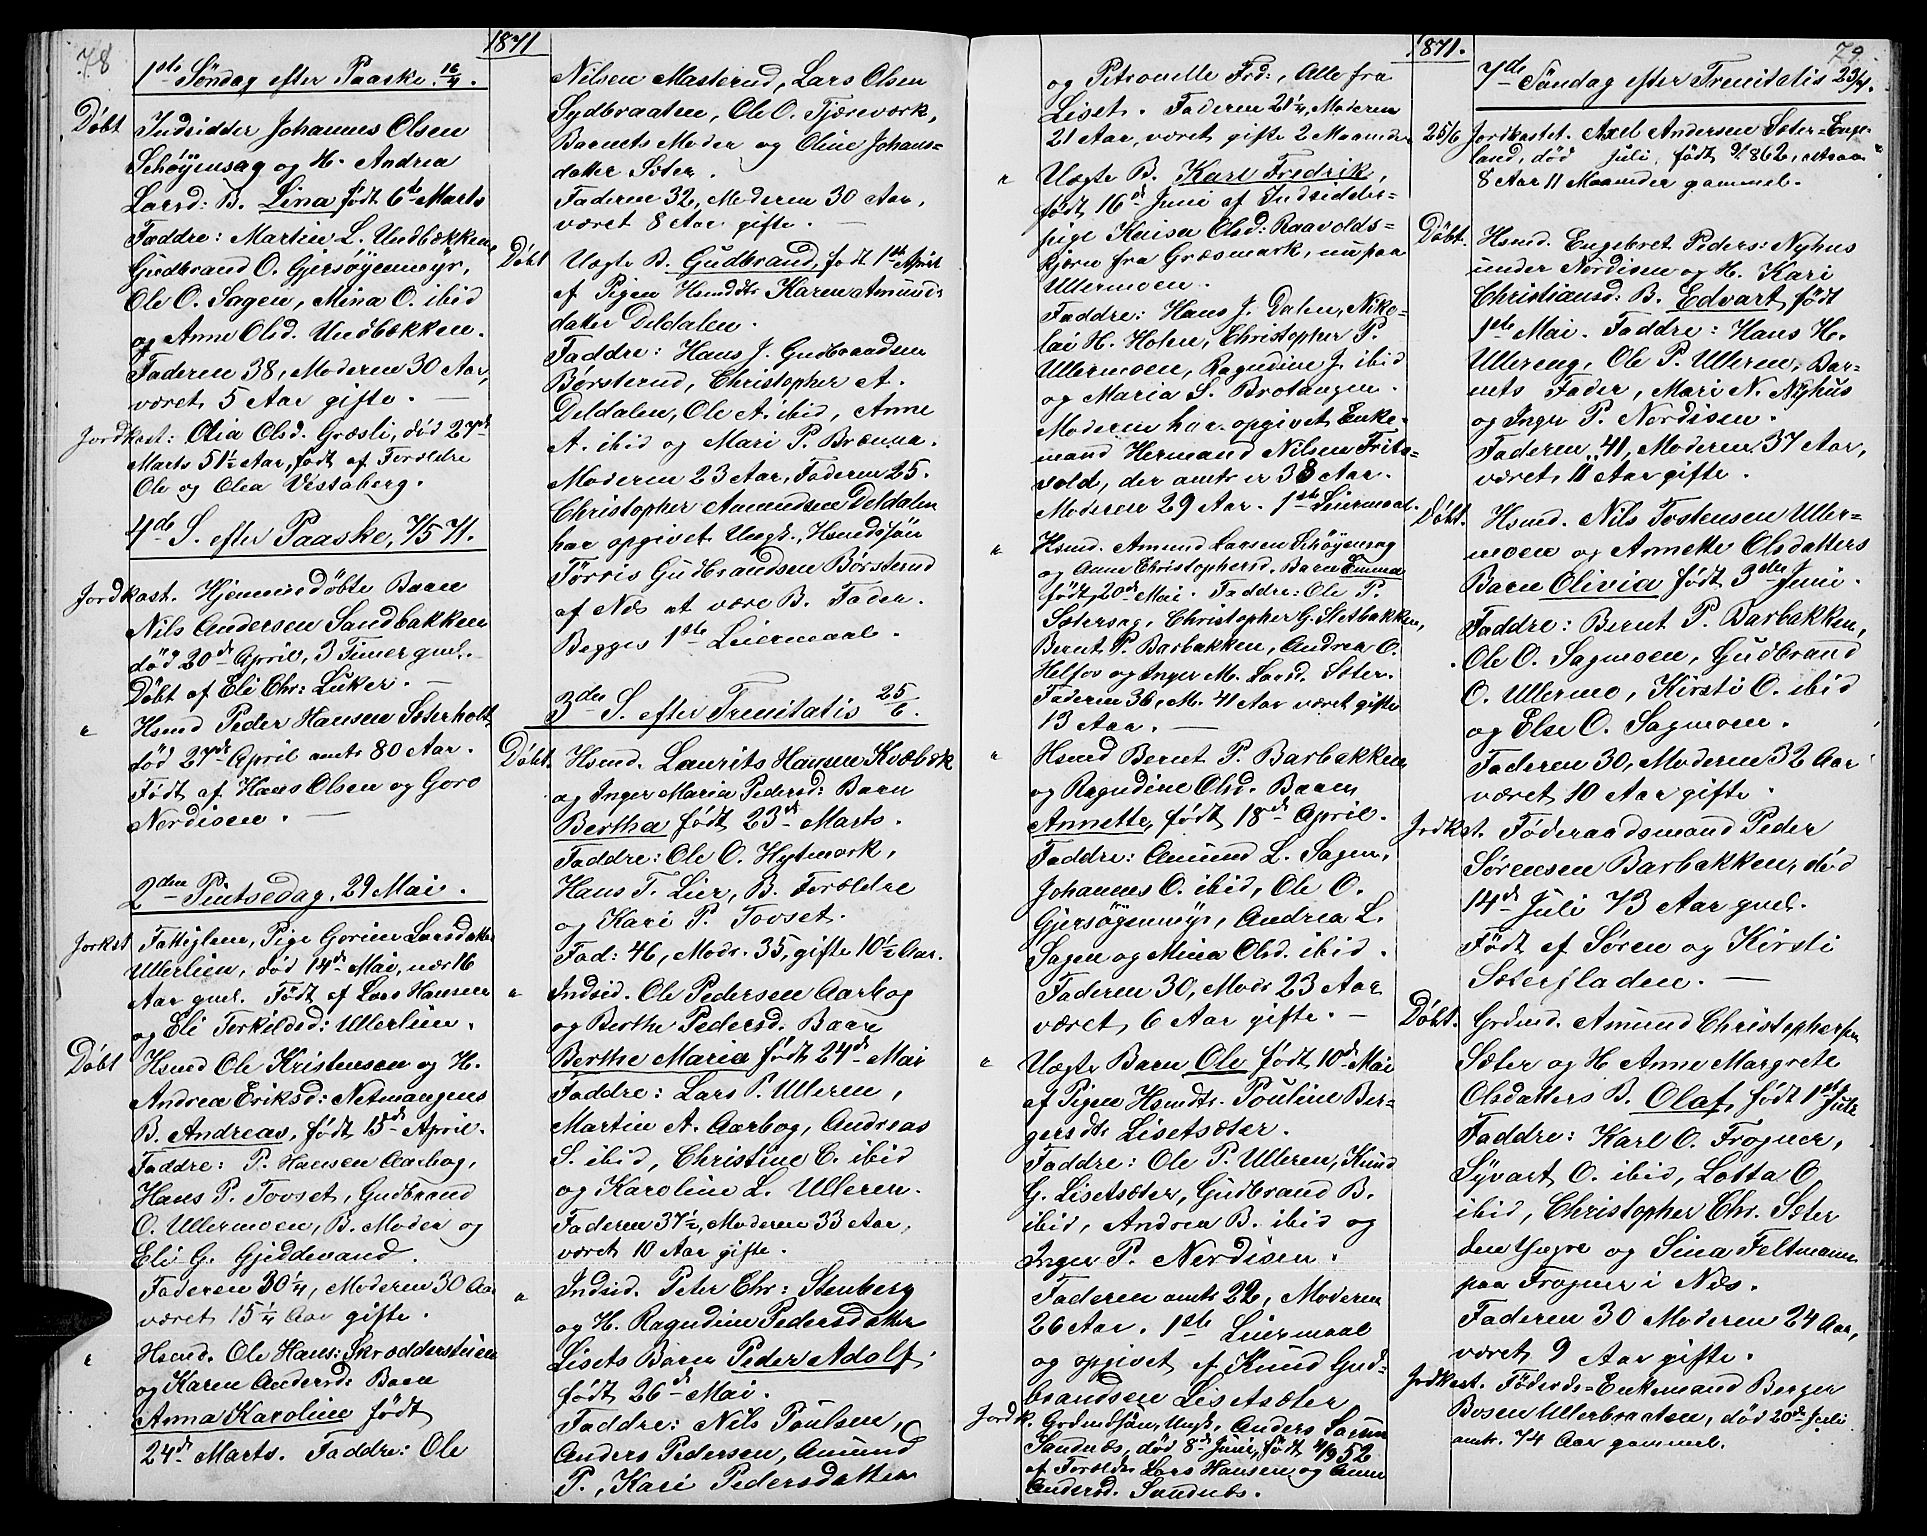 78
1871
1ste Søndag efter Paaske 16/4.
Døbt Indsidder Johannes Olsen
Schøyensag og H. Andrea
Larsd: B. Lina født 6te Marts
Faddre: Martin L. Undbækken
Gudbrand O. Gjersøyenmyr,
Ole O. Sagen, Mina O. ibid
og Anne Olsd. Undbækken.
Faderen 38, Moderen 30 Aar,
været 5 Aar gifte.
Jordkast: Olia Olsd. Græsli, død 27de
Marts 51½ Aar, født af Forældre
Ole og Olea Vestaberg.
4de S. efter Paaske, 7/5 71.
Jordkast. Hjemmedøbte Barn
Nils Andersen Sandbakken
død 20de April, 3 Timer gml.
Døbt af Eli Chr: Luker.
" Hsmd Peder Hansen Sæterholt
død 27de April amts 80 Aar.
Født af Hans Olsen og Goro
Nordisen.
2den Pintsedag, 29 Mai.
Jorkst Fattiglem, Pige Gorine Larsdatter
Ullerlien, død 14de Mai, nær 16
Aar gml. Født af Lars Hansen
og Eli Torkildsd: Ullerlien.
Døbt Hsmd Ole Kristensen og H.
Andrea Eriksd: Netmangens
B. Andreas, født 15de April.
Faddre: P. Hansen Aarbog,
Hans P. Tovset, Gudbrand
O. Ullermoen, B. Moder og
Eli G. Gjeddevand.
Faderen 30¼, Moderen 30 Aar
været 15¼ Aar gifte.
" Hsmd. Ole Hans: Skrædderstuen
og Karen Andersd: Barn
Anna Karoline født
24de Marts. Faddre: Ole
Nilsen Masterud, Lars Olsen
Sydbraaten, Ole O. Tjæreværk,
Barnets Moder og Oline Johans-
datter Sæter.
Faderen 32, Moderen 30 Aar,
været 8 Aar gifte.
Døbt Uægte B. Gudbrand, født 1ste April
af Pigen Hsmdtr Karen Amunds
datter Deldalen.
Faddre: Hans J. Gudbrandsen
Børsterud, Christopher A.
Deldalen, Ole A. ibid, Anne
A. ibid og Mari P. Brænna.
Moderen 23 Aar, Faderen 25.
Christopher Amundsen Deldalen
har opgivet Ungk., Hsmdssøn
Tørris Gudbrandsen Børsterud
af Næs at være B. Fader.
Begges 1ste Leiermaal.
3die S. efter Trenitatis 25/6
Døbt. Hsmd. Laurits Hansen Kvæbæk
og Inger Maria Pedersd: Barn
Bertha født 23de Marts.
Faddre: Ole O. Hytmork,
Hans T. Lier, B. Forældre
og Kari P. Tovset.
Fad: 46, Modr. 35, gifte 10½ Aar.
" Indsid. Ole Pedersen Aarbog
og Berthe Pedersd. Barn
Berthe Maria født 24de Mai
Faddre: Lars P. Ulleren,
Martin A. Aarbog, Andreas
S. ibid, Christine C. ibid
og Karoline L. Ulleren.
Faderen 37½, Moderen 33 Aar,
været 10 Aar gifte.
" Indsid. Peter Chr: Stenberg
og H. Ragndine Pedersdatter
Lisets Barn Peder Adolf
født 26de Mai.
Faddre: Nils Poulsen,
Anders Pedersen, Amund
P., Kari Pedersdatter
1871.
79
og Petronelle Frd:, Alle fra
Liset. Faderen 21¼, Moderen
21 Aar, været gifte 2 Maaneder
" Uægte B. Karl Fredrik,
født 16de Juni af Indsidder-
pige Kaisa Olsd: Raavolds-
kjern fra Græsmark, nu paa
Ullermoen.
Faddre: Hans J. Dalen, Niko-
lai H. Holen, Christopher P.
Ullermoen, Ragndine J. ibid
og Maria S. Brotangen.
Moderen har opgivet Enke-
mand Hermand Nilsen Frits-
vold, der amts er 38 Aar.
Moderen 29 Aar. 1ste Leiermaal.
" Hsmd. Amund Larsen Schøyensag
og Anne Christophersd. Barn Emma
født 20de Mai. Faddre: Ole P.
Sætersag, Christopher G. Stetbakken,
Bernt P. Barbakken, Andrea O.
Helfos og Inger M. Larsd. Sæter.
Faderen 36, M. 41 Aar været gifte
13 Aar.
" Hsmd Bernt P. Barbakken
og Ragndine Olsd. Barn
Annette, født 18de April.
Faddre: Amund L. Sagen,
Johannes O. ibid, Ole O.
Gjersøyenmyr, Andrea L.
Sagen og Mina Olsd. ibid.
Faderen 30, Modr 23 Aar
været 6 Aar gifte.
" Uægte Barn Ole født 10de Mai
af Pigen Hsmdtr. Pouline Ber-
gersdtr Lisetsæter.
Faddre: Ole P. Ulleren, Knud
G. Lisetsæter, Gudbrand B.
ibid, Andrea B. ibid og
Inger P. Nordisen.
Faderen amts 22, Moderen
26 Aar. 1ste Leiermaal
og opgivet af Knud Gud-
brandsen Lisetsæter
Jordk. Grdmdssøn, Ungk. Anders Larsen
Sandnes, død 8de Juni, født 4/9 52
af Forældre Lars Hansen og Anne
Andersd. Sandnes.
7de Søndag efter Trenitatis 23/7.
25/6 Jordkastet. Axel Andersen Sæter-Enge-
land, død Juli, født 9/. 862, altsaa
8 Aar 11 Maaneder gammel.
Døbt. Hsmd. Engebret Peders: Nyhus
under Nordisen og H. Kari
Christiansd: B. Edvart født
1ste Mai. Faddre: Hans H.
Ullereng, Ole P. Ulleren, Bar-
nets Fader, Mari N. Nyhus
og Inger P. Nordisen.
Faderen 41, Moderen 37 Aar,
været 11 Aar gifte.
Døbt. Hsmd. Nils Tostensen Uller-
moen og Annette Olsdatters
Barn Olivia født 3die Juni.
Faddre: Bernt P. Barbakken,
Ole O. Sagmoen, Gudbrand
O. Ullermo, Kirsti O. ibid
og Else O. Sagmoen.
Faderen 30, Moderen 32 Aar
været 10 Aar gifte.
Jordkst. Føderaadsmand Peder
Sørensen Barbakken, død
14de Juli 73 Aar gml.
Født af Søren og Kirsti
Sæterfladen.
Døbt. Grdmd. Amund Christophersen
Sæter og H Anne Margrete
Olsdatters B. Olaf, født 1ste Juli
Faddre: Karl O. Frogner,
Syvart O. ibid, Lotta O
ibid, Christopher Chr. Sæter
den Yngre og Sina Feltmann
paa Frogner i Næs.
Faderen 30 Moderen 24 Aar,
været 9 Aar gifte.
Jordkast. Føderds-Enkemand Berger
Bosen Ullerbraaten, død 20de Juli
amts. 74 Aar gammel.